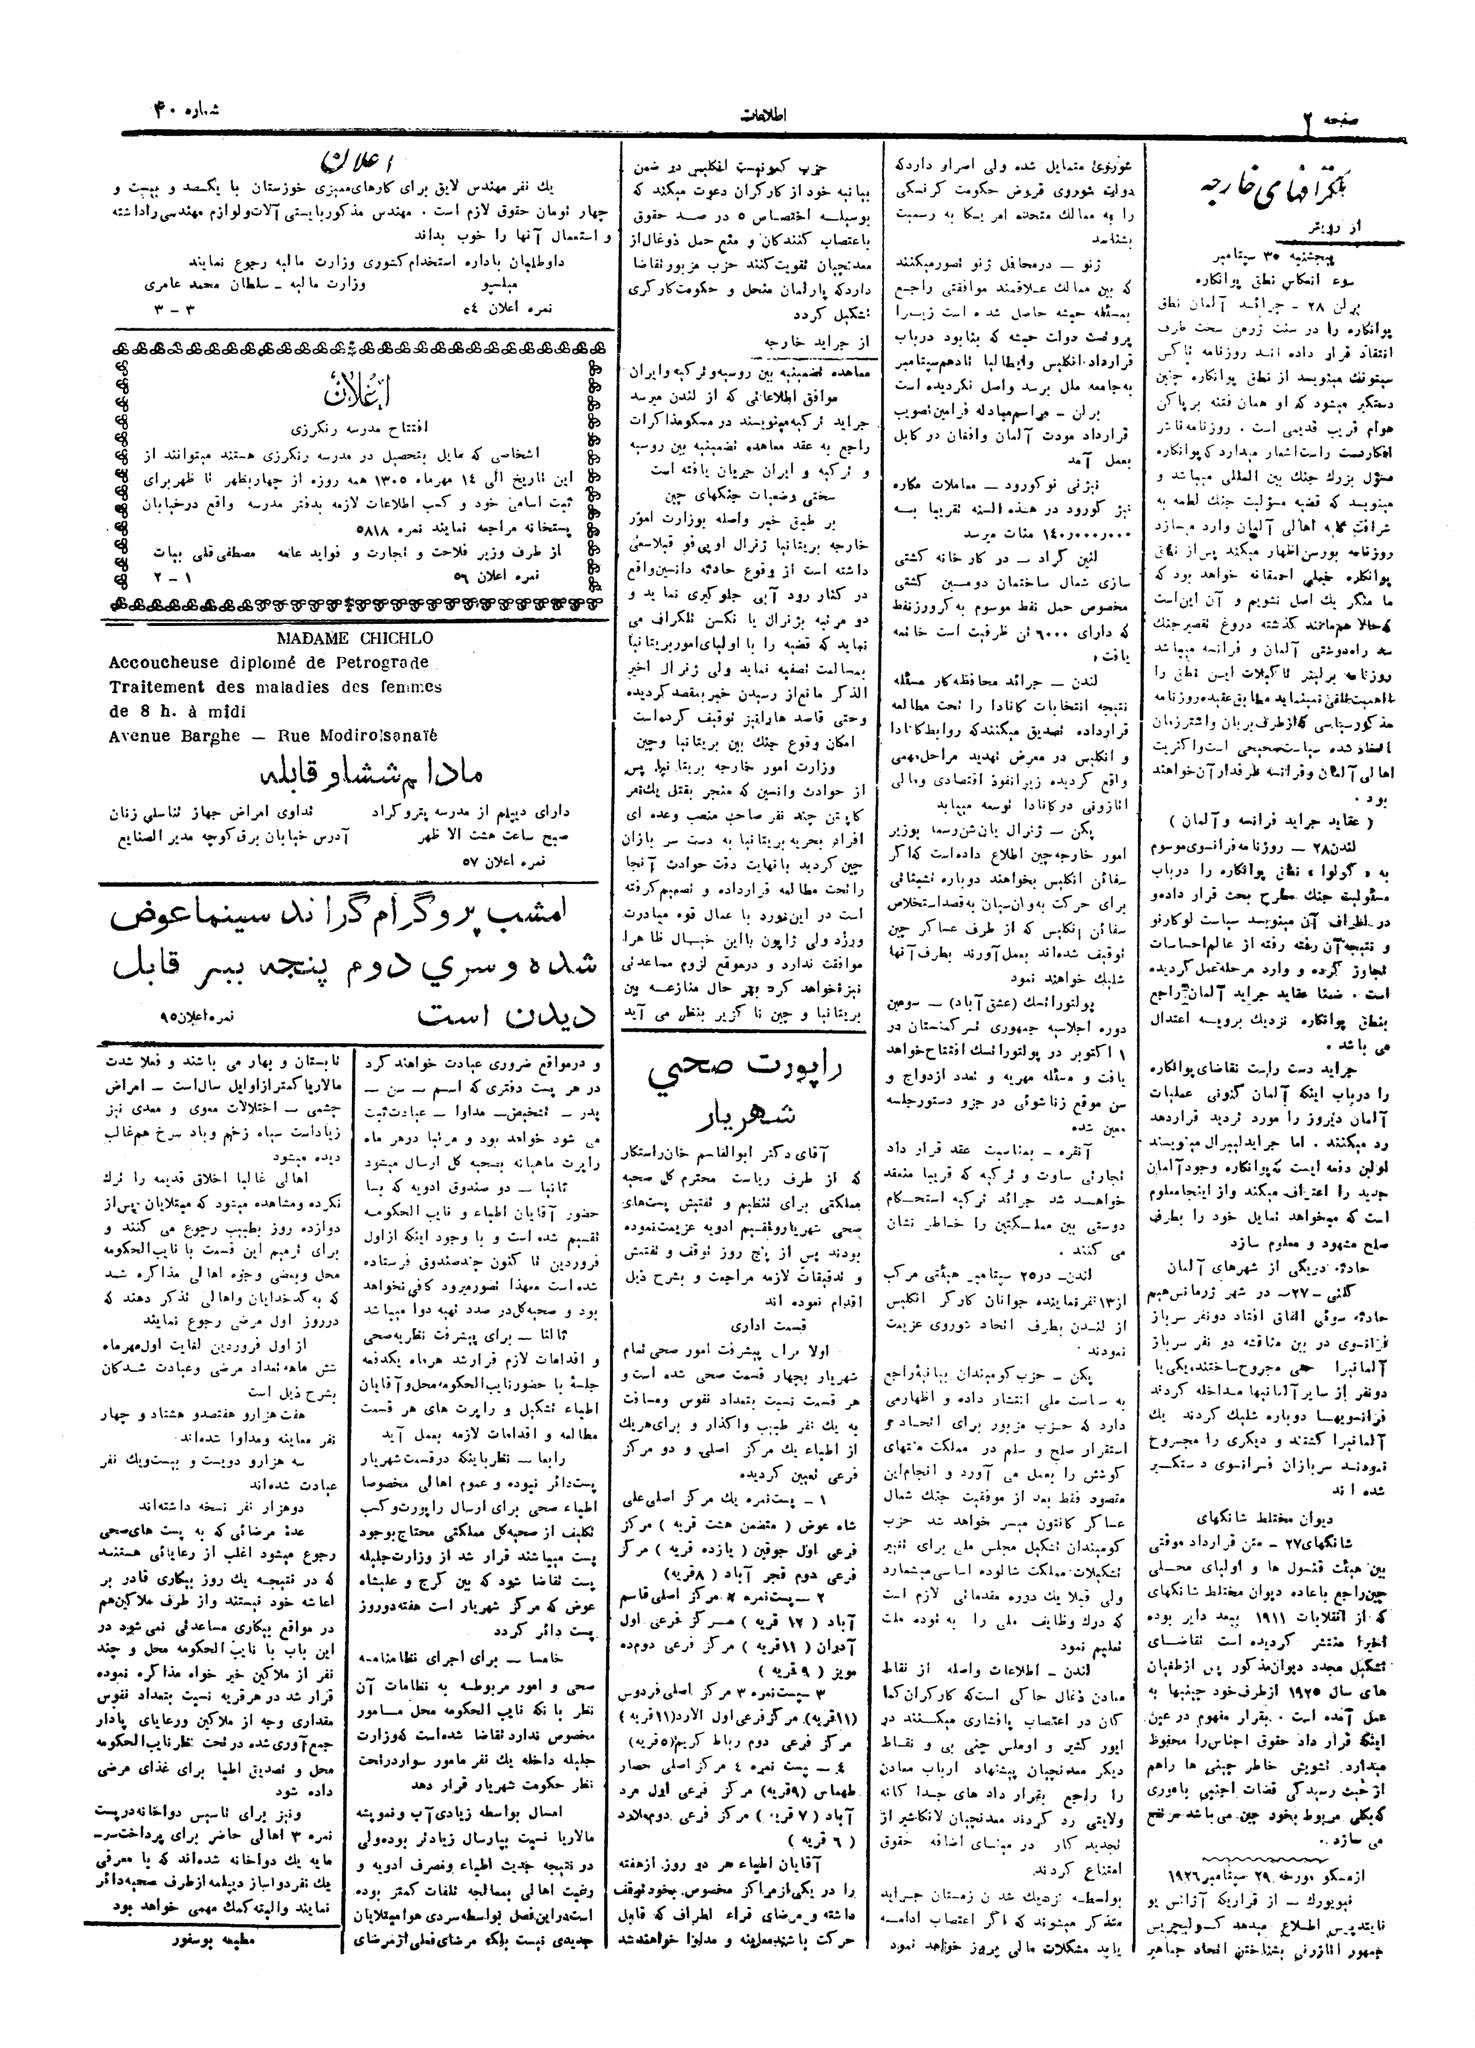 صفحه ۲
اطلاعات
شماره ۴۰
تلگرافهای خارجه
از رویتر
پنجشنبه ۳۰ سپتامبر
سوء انعکاس نطق پوانکاره
برلن ۲۸ - جرائد آلمان نطق
پوانکاره را در سنت ژرمن سخت طرف
انتقاد قرار داده اند روزنامه تاکس
سیتونك مینویسد از نطق پوانکاره چنین
دستگیر میشود که او همان فتنه بر پا کن
هوام قریب قدیمی است . روزنامه ناشر
افکار دست راست اشعار میدارد که پوانکاره
مسئول بزرك جنك بین المللی میباشد و
مینویسد که قضیه مسؤلیت جنك لطمه به
شرافت کلیه اهالی آلمان وارد میسازد
روزنامه بورسن اظهار میکند پس از نطق
پوانکاره خیلی احمقانه خواهد بود که
ما منکر یك اصل نشویم و آن این است
که حالا هم مانند گذشته دروغ تقصیر جنك
سد راه دوستی آلمان و فرانسه میباشد
اهالی آلمان و فرانسه طرفدار آن خواهند
بود .
( عقاید جراید فرانسه و آلمان )
لندن ۲۸ – روزنامه فرانسوی موسوم
به « گولوا » نطق پوانکاره را درباب
مسئولیت جنك مطرح بحث قرار داده و
در اطراف آن مینویسد سیاست لوکارنو
و نتیجه آن رفته رفته از عالم احساسات
تجاوز کرده و وارد مرحله عمل گردیده
است . ضمنا عقاید جراید آلمان راجع
بنطق پوانکاره نزدیك برویه اعتدال
می باشد .
جراید دست راست تقاضای پوانکاره
را درباب اینکه آلمان کنونی عملیات
آلمان دیروز را مورد تردید قرار دهد
رد میکنند . اما جراید لیبرال مینویسند
اولین دفعه ایست که پوانکاره وجود آلمان
جدید را اعتراف میکند و از اینجا معلوم
است که میخواهد تمایل خود را بطرف
صلح مشهود و معلوم سازد
حادثه در یکی از شهرهای آلمان
کلنی -۲۷- در شهر ژرمانس هیم
حادثه سوئی اتفاق افتاد دو نفر سرباز
فرانسوی در بین مناقشه دو نفر سرباز
آلمانیرا حتی مجروح ساختند، یکی با
دو نفر از سایر آلمانیها مداخله کردند
فرانسویها دوباره شلیك کردند یك
آلمانیرا کشتند و دیگری را مجروح
نمودند سربازان فرانسوی دستگیر
شده اند
دیوان مختلط شانگهای
شانگهای ۲۷ - متن قرارداد موقتی
بین هیئت قنسول ها و اولیای محلی
چین راجع باعاده دیوان مختلط شانگهای
که از انقلابات ۱۹۱۱ ببعد دایر بوده
اخیرا منتشر گردیده است تقاضای
تشکیل مجدد دیوان مذکور پس از طغیان
های سال ۱۹۲۵ از طرف خود چینیها به
عمل آمده است . بقرار مفهوم در عین
اینکه قرار داد حقوق اجناس را محفوظ
میدارد، تشویش خاطر چینی ها راهم
از حیث رسیدگی قضات اجنبی باموری
که بکلی مربوط بخود چین می باشد مرتفع
می سازد .
از مسکو مورخه ۲۹ سپتامبر ۱۹۲۶
نیویورك – از قراریکه آژانس یو
نایتدپرس اطلاع میدهد کولیچریس
جمهور اتازونی بشناختن اتحاد جماهیر
شوروی متمایل شده ولی اصرار دارد که
دولت شوروی قروض حکومت کرنسکی
را به ممالك متحده امریکا به رسمیت
بشناسد
ژنو – در محافل ژنو تصور میکنند
که بین ممالك علاقمند موافقتی راجع
بمسئله حبشه حاصل شده است زیرا
پروتست دولت حبشه که بنا بود درباب
قرارداد انگلیس و ایطالیا تا دهم سپتامبر
به جامعه ملل برسد واصل نگردیده است
برلن – مراسم مبادله فرامین تصویب
قرارداد مودت آلمان و افغان در کابل
بعمل آمد
نیژنی نوگورود – معاملات مکاره
نیژ گورود در هذه السنه تقریبا به
۱۴۰٬۰۰۰٬۰۰۰ منات میرسد
لنین گراد – در کارخانه کشتی
سازی شمال ساختمان دومین کشتی
مخصوص حمل نفط موسوم به گروزنفط
که دارای ۶۰۰۰ تن ظرفیت است خاتمه
یافت،
لندن – جرائد محافظه کار مسئله
نتیجه انتخابات کانادا را تحت مطالعه
قرار داده تصدیق میکنند که روابط کانادا
و انگلیس در معرض تهدید مراحل مهمی
واقع گردیده زیرا نفوذ اقتصادی و مالی
اتازونی در کانادا توسعه مییابد
پکن – ژنرال یان شن رسما بوزیر
امور خارجه چین اطلاع داده است که اگر
سفائن انگلیس بخواهند دوباره تشبثاتی
برای حرکت به وان سیان به قصد استخلاص
سفائن انگلیس که از طرف عساکر چین
توقیف شده اند بعمل آورند بطرف آنها
شلیك خواهند نمود
پولتوراتسك (عشق آباد) – سومین
دوره اجلاسیه جمهوری ترکمنستان در
۱ اکتوبر در پولتوراتسك افتتاح خواهد
یافت و مسئله مهریه و تعدد ازدواج و
سن موقع زناشوئی در جزو دستور جلسه
معین شده
آنقره – بمناسبت عقد قرار داد
تجارتی ساوت و ترکیه که قریبا منعقد
خواهد شد جرائد ترکیه استحکام
دوستی بین مملکتین را خاطر نشان
می کنند .
لندن- در ۲۵ سپتامبر هیئتی مرکب
از ۱۳ نفر نماینده جوانان کارگر انگلیس
از لندن بطرف اتحاد شوروی عزیمت
نمودند
پکن – حزب کومیندان بیانیه راجع
به سیاست ملی انتشار داده و اظهار می
دارد که حزب مزبور برای اتحاد و
استقرار صلح و سلم در مملکت منتهای
کوشش را بعمل می آورد و انجام این
مقصود فقط بعد از موفقیت جنك شمال
عساکر کانتون میسر خواهد شد حزب
کومیندان تشکیل مجلس ملی برای تغییر
تشکیلات مملکت شالوده اساسی میشمارد
ولی قبلا یك دوره مقدماتی لازم است
که درك وظایف ملی را به توده ملت
تعلیم نمود
لندن – اطلاعات واصله از نقاط
معادن ذغال حاکی است که کارگران کما
کان در اعتصاب پافشاری میکنند در
دیگر معدنچیان پیشنهاد ارباب معادن
را راجع بقرار داد های جدا گانه
ولایتی رد کردند معدنچیان لانکاشیر از
تجدید کار در مبنای اضافه حقوق
امتناع کردند
بواسطه نزدیك شدن زمستان جراید
متذکر میشوند که اگر اعتصاب ادامه
یابد مشکلات مالی بروز خواهد نمود
حزب کمونیست انگلیس در ضمن
بیانیه خود از کارگران دعوت میکند که
بوسیله اختصاص ۵ در صد حقوق
باعتصاب کنندگان و منع حمل ذوغال از
معدنچیان تقویت کنند حزب مزبور تقاضا
دارد که پارلمان منحل و حکومت کارگری
تشکیل گردد
از جراید خارجه
معاهده تضمینیه بین روسیه و ترکیه و ایران
موافق اطلاعاتی که از لندن میرسد
جراید ترکیه مینویسند در مسکو مذاکرات
راجع به عقد معاهده تضمینیه بین روسیه
و ترکیه و ایران جریان یافته است
سختی وضعیات جنگهای چین
بر طبق خبر واصله بوزارت امور
خارجه بریتانیا ژنرال اوپی فو قبلا سعی
داشته است از وقوع حادثه دانسین واقع
در کنار رود آبی جلوگیری نماید و
دو مرتبه بژنرال یا نکسن تلگراف می
نماید که قضیه را با اولیای امور بریتانیا
بمسالمت تصفیه نماید ولی ژنرال اخیر
الذکر مانع از رسیدن خبر بمقصد گردیده
وحتی قاصد ها را نیز توقیف کرده است
امکان وقوع جنك بین بریتانیا و چین
وزارت امور خارجه بریتانیا، پس
از حوادث وانسین که منجر بقتلی یك نفر
کاپتن چند نفر صاحب منصب وعده ای
افراد بحریه بریتانیا به دست سربازان
چین گردید بانهایت دقت حوادث آنجا
را تحت مطالعه قرار داده و تصمیم گرفته
است در این مورد با عمال قوه مبادرت
ورزد ولی ژاپون با این خیال ظاهرا
موافقت ندارد و در موقع لزوم مساعدتی
نیز نخواهد کرد بهر حال منازعه بین
بریتانیا و چین ناگزیر بنظر می آید
راپورت صحی
شهریار
آقای دکتر ابوالقاسم خان راستکار
که از طرف ریاست محترم کل صحیه
مملکتی برای تنظیم و تفتیش پست های
صحی شهریار و تقسیم ادویه عزیمت نموده
بودند پس از پنج روز توقف و تفتیش
و تدقیقات لازمه مراجعت و بشرح ذیل
اقدام نموده اند
قسمت اداری
اولا برای پیشرفت امور صحی تمام
شهریار بچهار قسمت صحی شده است و
هر قسمت نسبت بتعداد نفوس ومسافت
به یك نفر طبیب واگذار و برای هریك
از اطباء یك مرکز اصلی و دو مرکز
فرعی تعیین گردیده
۱ - پست نمره یك مرکز اصلی علی
شاه عوض ( متضمن هشت قریه ) مرکز
فرعی اول جوقین ( یازده قریه ) مرکز
فرعی دوم قجر آباد ( ۸ قریه )
۲ – پست نمره ۲ مرکز اصلی قاسم
آباد ( ۱۲ قریه ) مرکز فرعی اول
آدران ( ۱۱ قریه ) مرکز فرعی دوم ده
مویز ( ۹ قریه )
۳ – پست نمره ۳ مرکز اصلی فردوس
(۱۱ قریه). مرکز فرعی اول الارد (۱۱ قریه )
مرکز فرعی دوم رباط کریم (۵ قریه)
۴ – پست نمره ۴ مرکز اصلی حصار
طهماس (۹ قریه) مرکز فرعی اول مرد
آباد ( ۷ قریه ) مرکز فرعی دوم ملارد
( ۶ قریه )
آقایان اطباء هر دو روز از هفته
را در یکی از مراکز مخصوص بخود توقف
داشته و مرضای قراء اطراف که قابل
حرکت باشند معاینه و مداوا خواهند شد
اعلان
یك نفر مهندس لایق برای کارهای ممیزی خوزستان با یکصد و بیست و
چهار تومان حقوق لازم است . مهندس مذکور بایستی آلات و لوازم مهندسی را داشته
و استعمال آنها را خوب بداند
داوطلبان باداره استخدام کشوری وزارت مالیه رجوع نمایند
میلسپو وزارت مالیه – سلطان محمد عامری
نمره اعلان ۵۴ ۳ – ۳
اعلان
افتتاح مدرسه رنگرزی
اشخاصی که مایل بتحصیل در مدرسه رنگرزی هستند میتوانند از
این تاریخ الی ۱۴ مهرماه ۱۳۰۵ همه روزه از چهار بظهر تا ظهر برای
ثبت اسامی خود و کسب اطلاعات لازمه بدفتر مدرسه واقع در خیابان
پستخانه مراجعه نمایند نمره ۵۸۱۸
از طرف وزیر فلاحت و تجارت و فواید عامه مصطفی قلی بیات
نمره اعلان ۵۶ ۱ – ۲
MADAME CHICHLO
Accoucheuse diplomé de Petrograde
Traitement des maladies des femmes
de 8 h. à midi
Avenue Barghe — Rue Modirolsanaïé
مادام ششلو قابله
دارای دیپلم از مدرسه پتروگراد تداوی امراض جهاز تناسلی زنان
صبح ساعت هشت الا ظهر آدرس خیابان برق کوچه مدیر الصنایع
نمره اعلان ۵۷
امشب پروگرام گراند سینما عوض
شده و سری دوم پنجه ببر قابل
دیدن است
نمره اعلان ۹۵
و در مواقع ضروری عیادت خواهند کرد
در هر پست دفتری که اسم – سن –
پدر – تشخیص – مداوا – عیادت ثبت
می شود خواهد بود و مرتبا در هر ماه
راپرت ماهیانه بصحیه کل ارسال میشود
ثانیا – دو صندوق ادویه که با
حضور آقایان اطباء و نایب الحکومه
تقسیم شده است و با وجود اینکه از اول
فروردین تا کنون چند صندوق فرستاده
شده است معهذا تصور میرود کافی نخواهد
بود و صحیه کل در صدد تهیه دوا میباشد
ثالثا – برای پیشرفت نظریه صحی
و اقدامات لازم قرار شد هر ماه یکدفعه
جلسهٔ با حضور نایب الحکومه محل و آقایان
اطباء تشکیل و راپرت های هر قسمت
مطالعه و اقدامات لازمه بعمل آید
رابعا – نظر باینکه در قسمت شهریار
پست دائر نبوده و عموم اهالی مخصوصا
اطباء صحی برای ارسال راپورت و کسب
تکلیف از صحیه کل مملکتی محتاج بوجود
پست میباشند قرار شد از وزارت جلیله
پست تقاضا شود که بین کرج و علیشاه
عوض که مرکز شهریار است هفته دو روز
پست دائر گردد
خامسا – برای اجرای نظامنامه
صحی و امور مربوطه به نظامات آن
نظر بانکه نایب الحکومه محل مامور
مخصوص ندارد تقاضا شده است که وزارت
جلیله داخله یك نفر مامور سوار در تحت
نظر حکومت شهریار قرار دهد
امسال بواسطه زیادی آب و نوپشه
مالاریا نسبت بپارسال زیادتر بوده ولی
در نتیجه جدیت اطباء ومصرف ادویه و
رغبت اهالی بمعالجه تلفات کمتر بوده
است در این فصل بواسطه سردی هوا مبتلایان
جدیدی نیست بلکه مرضای فعلی از مرضای
تابستان و بهار می باشند و فعلا شدت
مالاریا کمتر از اوایل سال است – امراض
چشمی – اختلالات معوی و معدی نیز
زیاد است سیاه زخم وباد سرخ هم غالب
دیده میشود
اهالی غالبا اخلاق قدیمه را ترك
نکرده ومشاهده میشود که مبتلایان پس از
دوازده روز بطبیب رجوع می کنند و
برای ترمیم این قسمت با نایب الحکومه
محل وبعضی وجوه اهالی مذاکره شد
که به کدخدایان واهالی تذکر دهند که
در روز اول مرضی رجوع نمایند
از اول فروردین لغایت اول مهر ماه
شش ماهه تعداد مرضی وعیادت شدگان
بشرح ذیل است
هفت هزار و هفتصد و هشتاد و چهار
نفر معاینه ومداوا شده اند
سه هزار و دویست و بیست ویك نفر
عیادت شده اند
دو هزار نفر نسخه داشته اند
عدهٔ مرضائی که به پست های صحی
رجوع میشود اغلب از رعایائی هستند
که در نتیجه یك روز بیکاری قادر بر
اعاشه خود نیستند و از طرف ملاکین هم
در مواقع بیکاری مساعدتی نمی شود در
این باب با نایب الحکومه محل و چند
نفر از ملاکین خیر خواه مذاکره نموده
قرار شد در هر قریه نسبت بتعداد نفوس
مقداری وجه از ملاکین ورعایای پادار
جمع آوری شده در تحت نظر نایب الحکومه
محل و تصدیق اطبا برای غذای مرضی
داده شود
ونیز برای تاسیس دواخانه در پست
نمره ۳ اهالی حاضر برای پرداخت سر-
مایه یك دواخانه شده اند که با معرفی
یك نفر دوا ساز دیپلمه از طرف صحیه دائر
نمایند والبته کمك مهمی خواهد بود
مطبعه بوسفور